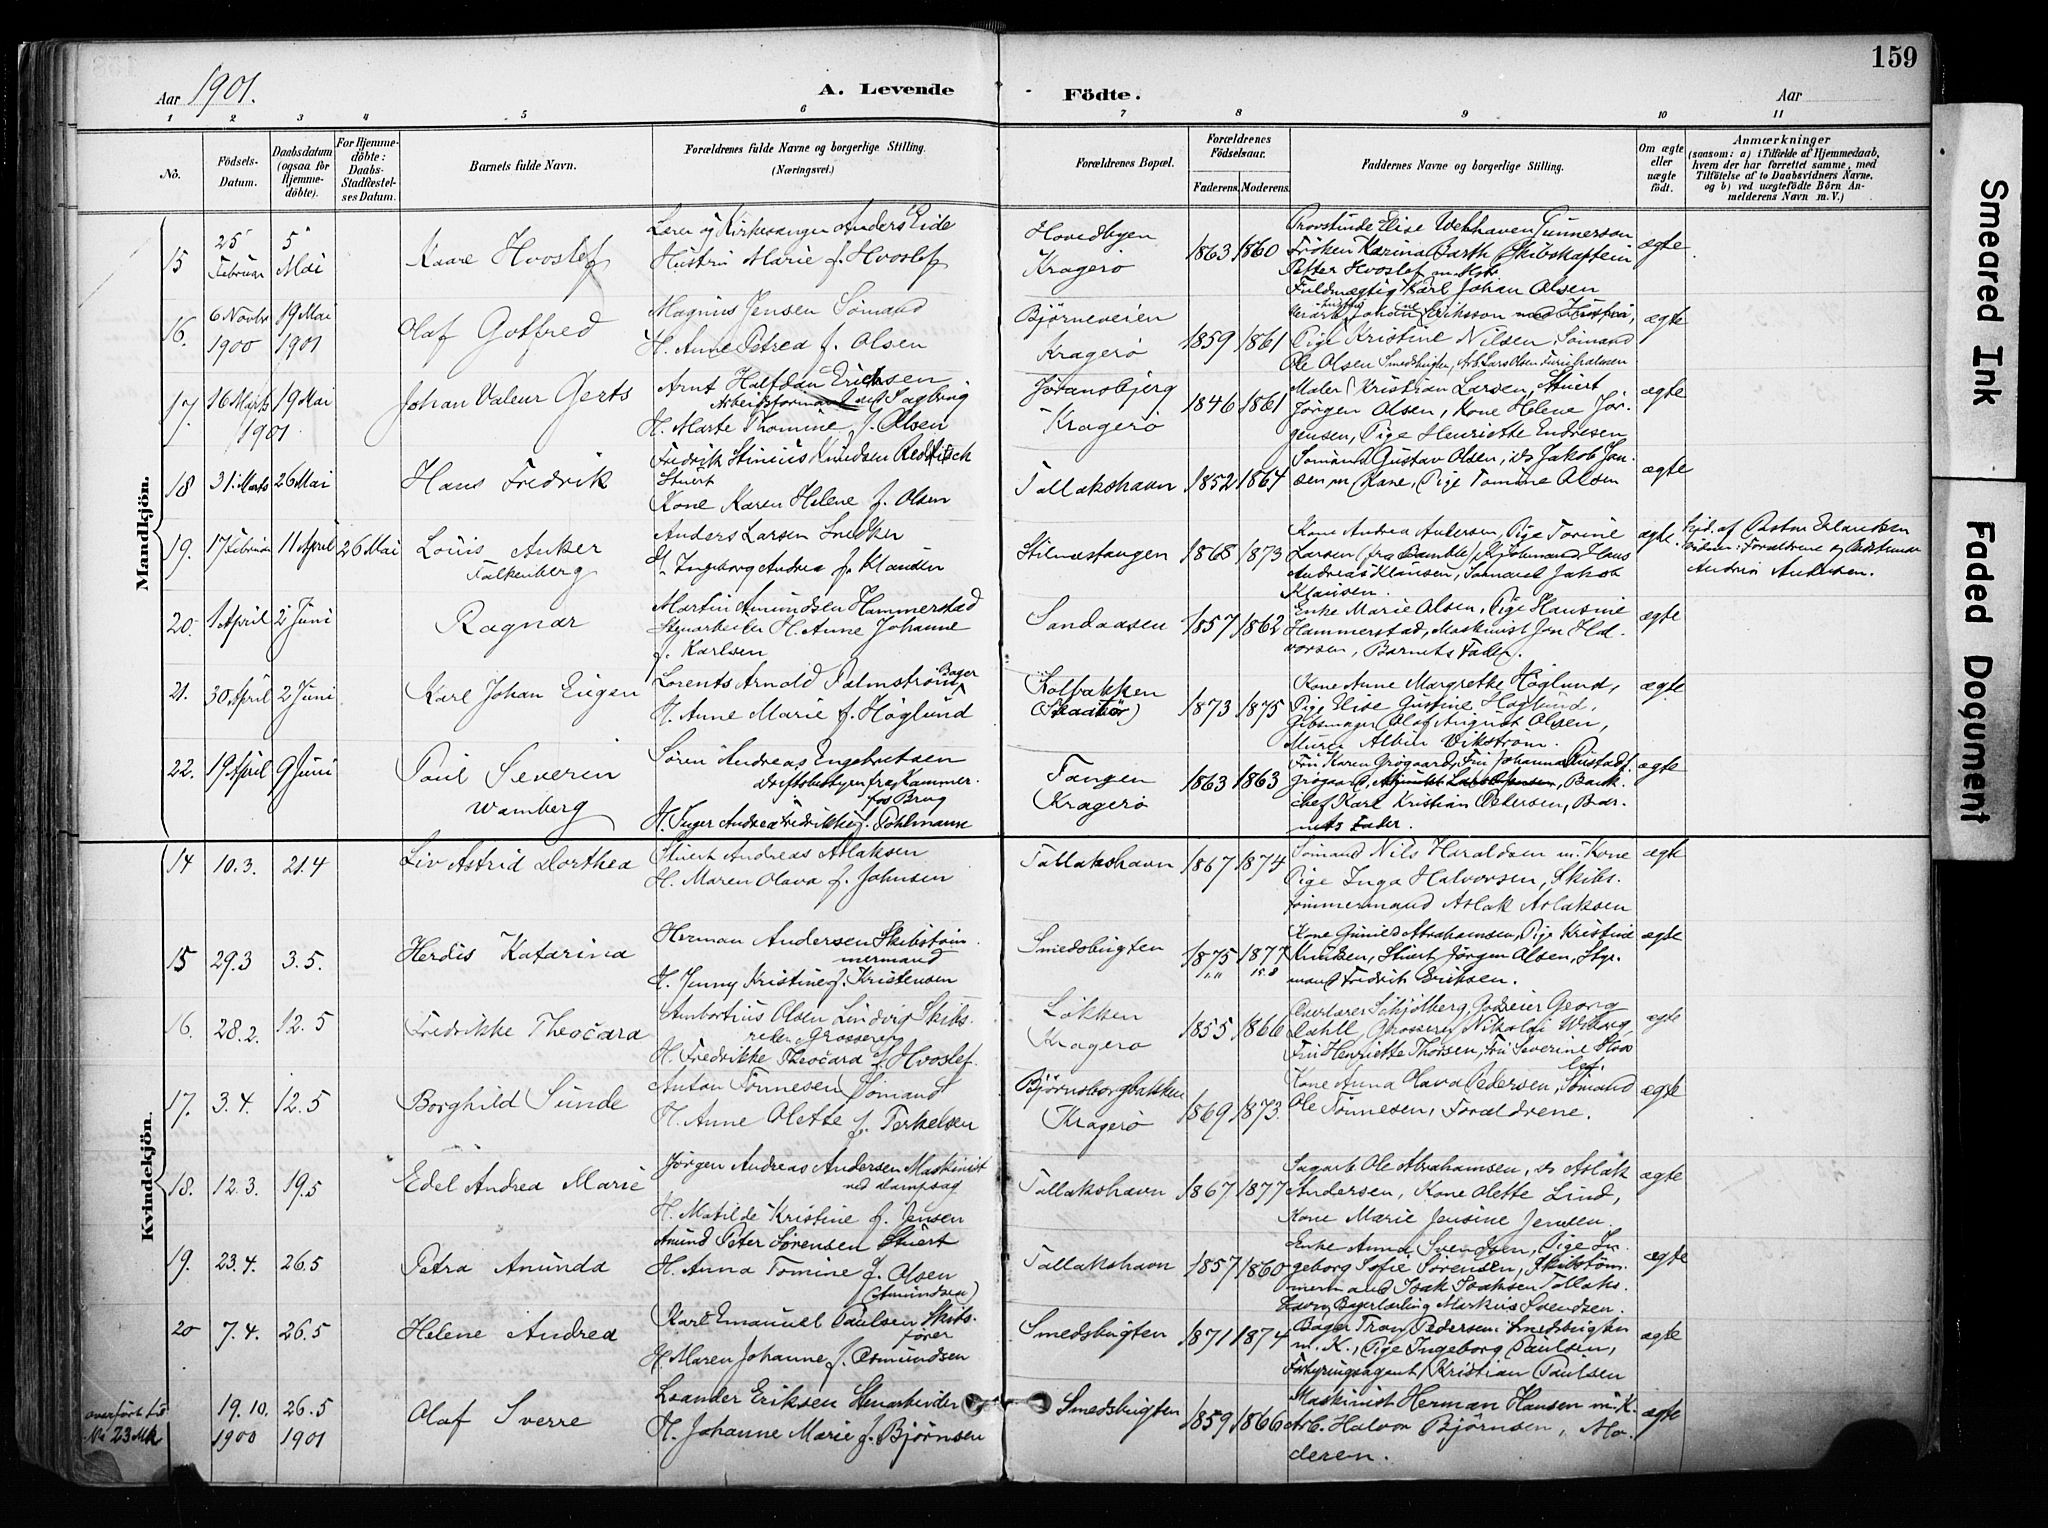 159
Aar 1901.
A. Levende
Födte.
Aar
1 2 3 4 5 6 7 8 9 10 11
No.
Födsels-
Datum.
Daabsdatum
(ogsaa for
Hjemme-
döbte).
For Hjemme-
döbte:
Daabs-
Stadfæstel-
ses Datum.
Barnets fulde Navn.
Forældrenes fulde Navne og borgerlige Stilling.
(Næringsvei.)
Forældrenes Bopæl.
Forældrenes
Födselsaar.
Faderens. Moderens.
Faddernes Navne og borgerlige Stilling.
Om ægte
eller
uægte
födt.
Anmærkninger
(saasom: a) i Tilfælde af Hjemmedaab,
hvem der har forrettet samme, med
Tilföielse af to Daabsvidners Navne,
og b) ved uægtefödte Börn An-
melderens Navn m. V.)
Mandkjön.
15 25 Februar 5 Mai Kaare Hvoslef
Lærer og Kirkesanger Anders Eide
Hustru Marie f. Hvoslef
Hovedbyen
Kragerö
1863 1860
Provstinde Elise Welhaven Gunnerson
Fröken Karina Barth Skibskaptein
Petter Hvoslef
Fuldmægtig Karl Johan Olsen
ægte
16. 6 Novbr 1900 19 Mai 1901 Olaf Gotfred
Magnus Jensen Sömand
H. Anne Petrea f. Olsen
Björneveien
Kragerö
1859 1861
Pige Kristine Nilsen, Sömand
Ole Olsen Smedsbugten
ægte
17 16 Marts 1901 19 Mai Johan Valeur Gerts
Arnt Halfdan Ericksen
Arbeidsformand ved Sagbrug
H. Marte Thomine f. Olsen
Jöransbjerg
Kragerö
1846 1861
Maler Kristian Larsen, Stuert
Jörgen Olsen, Kone Helene Jör-
gensen, Pige Henriette Endresen
ægte
18 31 Marts 26 Mai Hans Fredrik
Fredrik Stinius Knudsen
Stuert
Kone Karen Helene f. Olsen
Tallakshavn
1852 1864
Sömand Gustav Olsen, do Jakob Jan-
sen m Kone, Pige Tomine Olsen
ægte
19. 17 Februar 11 April 26 Mai Louis Anker
Falkenberg
Anders Larsen Snedker
H. Ingeborg Andrea f. Klausen
Stilnestangen
1868 1873
Kone Andrea Andersen, Pige Torine
Larsen (fra Bamble) Sjömand Hans
Andreas Klausen, Sömand Jakob
Klausen.
ægte.
Hjd. af Pastor Erlandsen
Andrea Andersen.
20. 1 April 2 Juni Ragnar
Martin Amundsen Hammerstad
Stenarbeider H. Anne Johanne
f. Karlsen
Sandaasen
1857 1862
Enke Marie Olsen, Pige Hansine
Hammerstad, Maskinist Jon Hal-
vorsen, Barnets Fader.
ægte
21. 30 April 2 Juni Karl Johan Eugen
Lorents Arnold Palmström Bager
H. Anne Marie f. Höglund
Kolbakken
(Skaatöi)
1873 1875
Kone Anne Margrethe Höglund,
Pige Elise Gustine Höglund,
Gibsmager Olaf August Olsen,
Murer Albin Vikström.
ægte
22. 19 April 9 Juni Paul Severin
Wamberg
Sören Andreas Engebretsen
Driftsbestyrer fra Kammer-
fos Brug
H. Inger Andrea Fredrikke f. Pohlmann
Tangen
Kragerö
1863 1863
Fru Karen Grögaard, Fru Johanna Rustad f.
Grögaard, Bank-
chef Karl Kristian Petersen, Bar-
nets Fader.
ægte
Kvindekjön.
14 10.3. 21.4 Liv Astrid Dorthea
Stuert Andreas Aslaksen
H. Maren Olava f. Johnsen
Tallakshavn
1867 1874
Sömand Nils Haraldsen m. Kone
Pige Inga Halvorsen, Skibs-
tömmermand Aslak Aslaksen
ægte
15 29.3 3.5. Herdis Katarina
Herman Andersen Skibstöm-
mermand
H. Jenny Kristine f. Kristensen
Smedsbugten
1875 1877
Kone Gunild Abrahamsen, Pige Kristine
Knudsen, Stuert Jörgen Olsen, Styr-
mand Fredrik Eriksen.
ægte
16. 28.2. 12.5 Fredrikke Theocara
Ambortius Olsen Lindvig Skibs-
reder, Grosserer
H. Fredrikke Theocara f. Hvoslef.
Lökken
Kragerö
1855 1866
Overlærer Schjölberg, Godseier Georg
Dahll, Grosserer Nikolai Wiborg
Fru Henriette Thorsen, Fru Severine Hvos-
lef.
ægte
17. 3.4. 12.5 Borghild Sunde
Anton Tönnesen Sömand
H. Anne Olette f. Terkelsen
Björnsborgbakken
Kragerö
1869 1873.
Kone Anna Olava Pedersen, Sömand
Ole Tönnesen, Forældrene.
ægte
18. 12.3. 19.5 Edel Andrea Marie
Jörgen Andreas Andersen Maskinist
ved Dampsag
H. Matilde Kristine f. Jensen
Tallakshavn
1867 1877
Sagarb. Ole Abrahamsen, do Aslak
Andersen, Kone Olette Lind,
Kone Marie Jensine Jensen.
ægte
19. 23.4. 26.5 Petra Amunda
Amund Peter Sörensen Stuert
H. Anna Tomine f. Olsen
(Amundsen)
Tallakshavn
1857 1860
Enke Anna Svendsen, Pige In-
geborg Sofie Sörensen, Skibstöm-
mermand Isak Isaksen Tallaks-
havn, Bagerlærling Markus Svendsen.
ægte
20 7.4. 26.5 Helene Andrea
Karl Emanuel Paulsen Skibs-
förer
H. Maren Johanne f. Osmundsen
Smedsbugten
1871 1874
Bager Tron Pedersen Smedsbugten
m. K., Pige Ingeborg Paulsen,
Forhyringsagent Kristian Paulsen
ægte
overfört til
No 23 Mk
19.10. 1900 26.5 1901 Olaf Sverre
Leander Eriksen Stenarbeider
H. Johanne Marie f. Björnsen
Smedsbugten
1859 1866
Maskinist Herman Hansen m. K.
Arb. Halvor Björnsen, Mo-
deren.
ægte
Smeared Ink
Faded Document